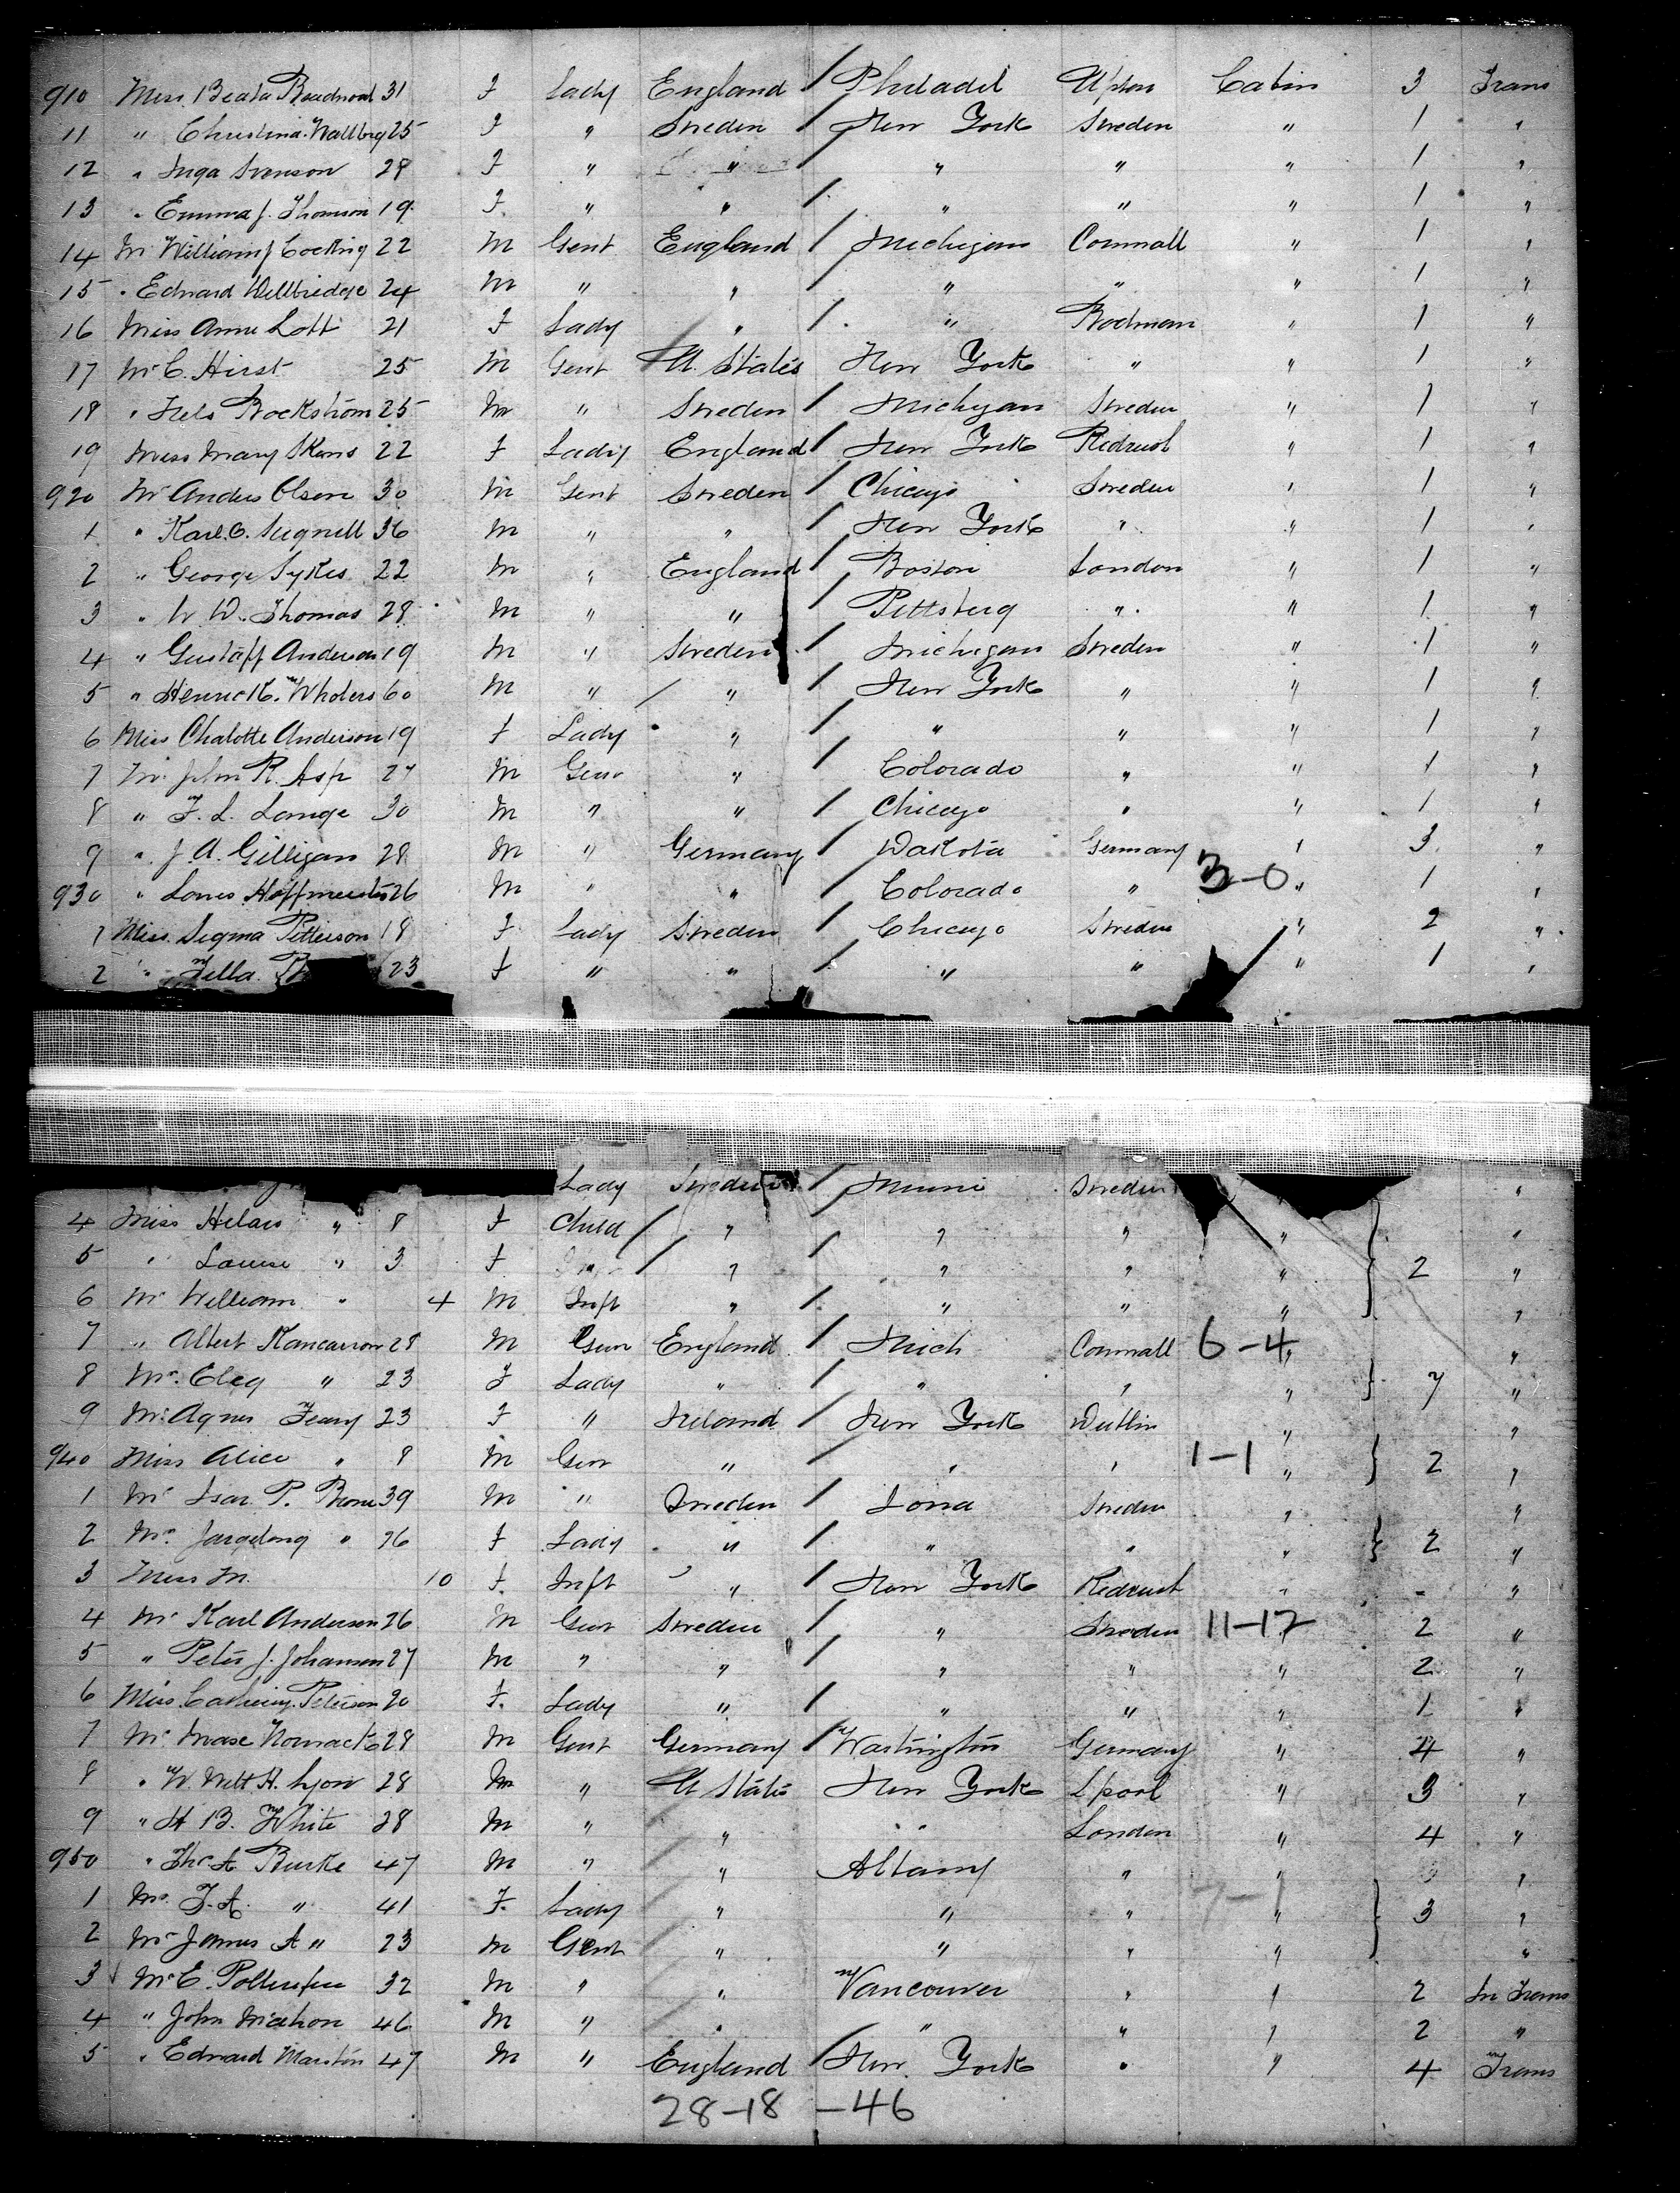 910 Miss Beata 31 F Lady England / Philadel Upton Cabin 3 Trans
11 " Christina Wallbrg 25 F " Sweden / New York Sweden " 1 "
12 " Inga Svenson 28 F " " / " " " 1 "
13 " Emma J. Thomson 19 F. " " / " " " 1 "
14 Mr William J Cocking 22 M Gent England / Michigan Cornwall " 1 "
15 " Edward Wellbridge 24 M " " / " " " 1 "
16 Miss Anne Lott 21 F Lady " / " Bodman " 1 "
17 Mr C. Hirst 25 M Gent U. States New York " " 1 "
18 " Nels Backstrom 25 M " Sweden / Michigan Sweden " 1 "
19 Miss Mary Skens 22 F Lady England / New York Redruth " 1 "
920 Mr Andrs Olsen 30 M Gent Sweden / Chicago Sweden " 1 "
1 " Karl. O. 36 M " " / New York " " 1 "
2 " George Sykes 22 M " England / Boston London " 1 "
3 " W. Thomas 28 M " " / Pittsburg " " 1 "
4 " Gustaff Anderson 19 M " Sweden / Michigan Sweden " 1 "
5 " Henric K. Wholers 60 M " / " / New York " " 1 "
6 Miss Chalotte Anderson 19 F Lady " / " " " 1 "
7 Mr. John R. Asp 27 M Gent " / Colorado " " 1 "
8 " F. L. Lange 30 M " " / Chicago " " 1 "
9 " J. A. Gilligan 28 M " Germany / Dakota Germany " 3 "
930 " Louis Hoffmeister 26 M " " / Colorado " 3-0 " 1 "
1 Miss Sigma Petterson 18 F Lady Sweden / Chicago Sweden " 2 "
2 " 23 F " " / " " " 1 "
Lady Sweden / Minni Sweden "
4 Miss " 8 F Child / " / " " " "
5 " Louise " 3 F " / " / " " " } 2 "
6 Mr William " 4 M Inft " / " " " "
7 " Albert 28 M Gent England / Mich Cornwall 6-4 " "
8 Mrs. " 23 F Lady " / " " " } 7 "
9 Mrs Agnes 23 F " Ireland / New York Dublin " "
940 Miss Alice " 8 M Gent " / " " 1-1 " } 2 "
1 Mr P. 39 M " Sweden / Iowa Sweden " "
2 Mrs. " 26 F Lady " / " " " } 2 "
3 Miss M. 10 F. Inft " / New York Redruth " - "
4 Mr Karl Anderson 26 M Gent Sweden / " Sweden 11-17 2 "
5 " Peter J. Johanson 27 M " " / " " " 2 "
6 Miss Peterson 20 F. Lady " / " " " 1 "
7 Mr 28 M Gent Germany / Washington Germany " 4 "
8 " W. Witt H. Lyon 28 M " U States New York Lpool " 3 "
9 " H B. White 28 M " " " London " 4 "
950 " Thos A Burke 47 M " " Albany " " "
1 Mrs. T. A. " 41 F. Lady " " " 7-1 " } 3 "
2 Mr James A " 23 M Gent " " " " "
3 Mr E. 32 M " " Vancouver " " 2 In Trans
4 " John Mahon 46 M " " " " " 2 "
5 " Edward Marston 47 M " England / New York " " 4 Trans
28-18 -46